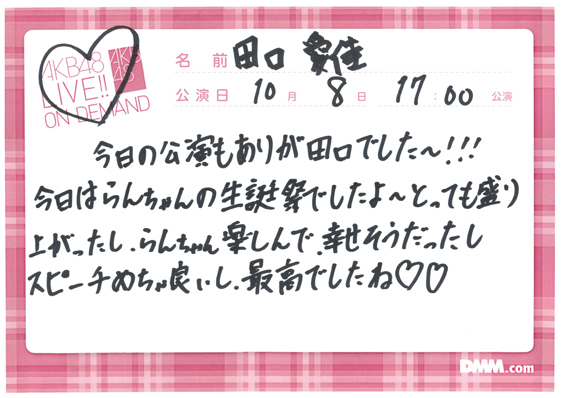 AKB48
LIVE!!
ON DEMAND
AKB
48
名前 田口 愛佳
公演日 10月 8日 17:00 公演
今日の公演もありが田口でした〜!!!
今日はらんちゃんの生誕祭でしたよ〜とっても盛り
上がったし、らんちゃん楽しんで、幸せそうだったし
スピーチめちゃ良いし、最高でしたね♡♡
DMM.com